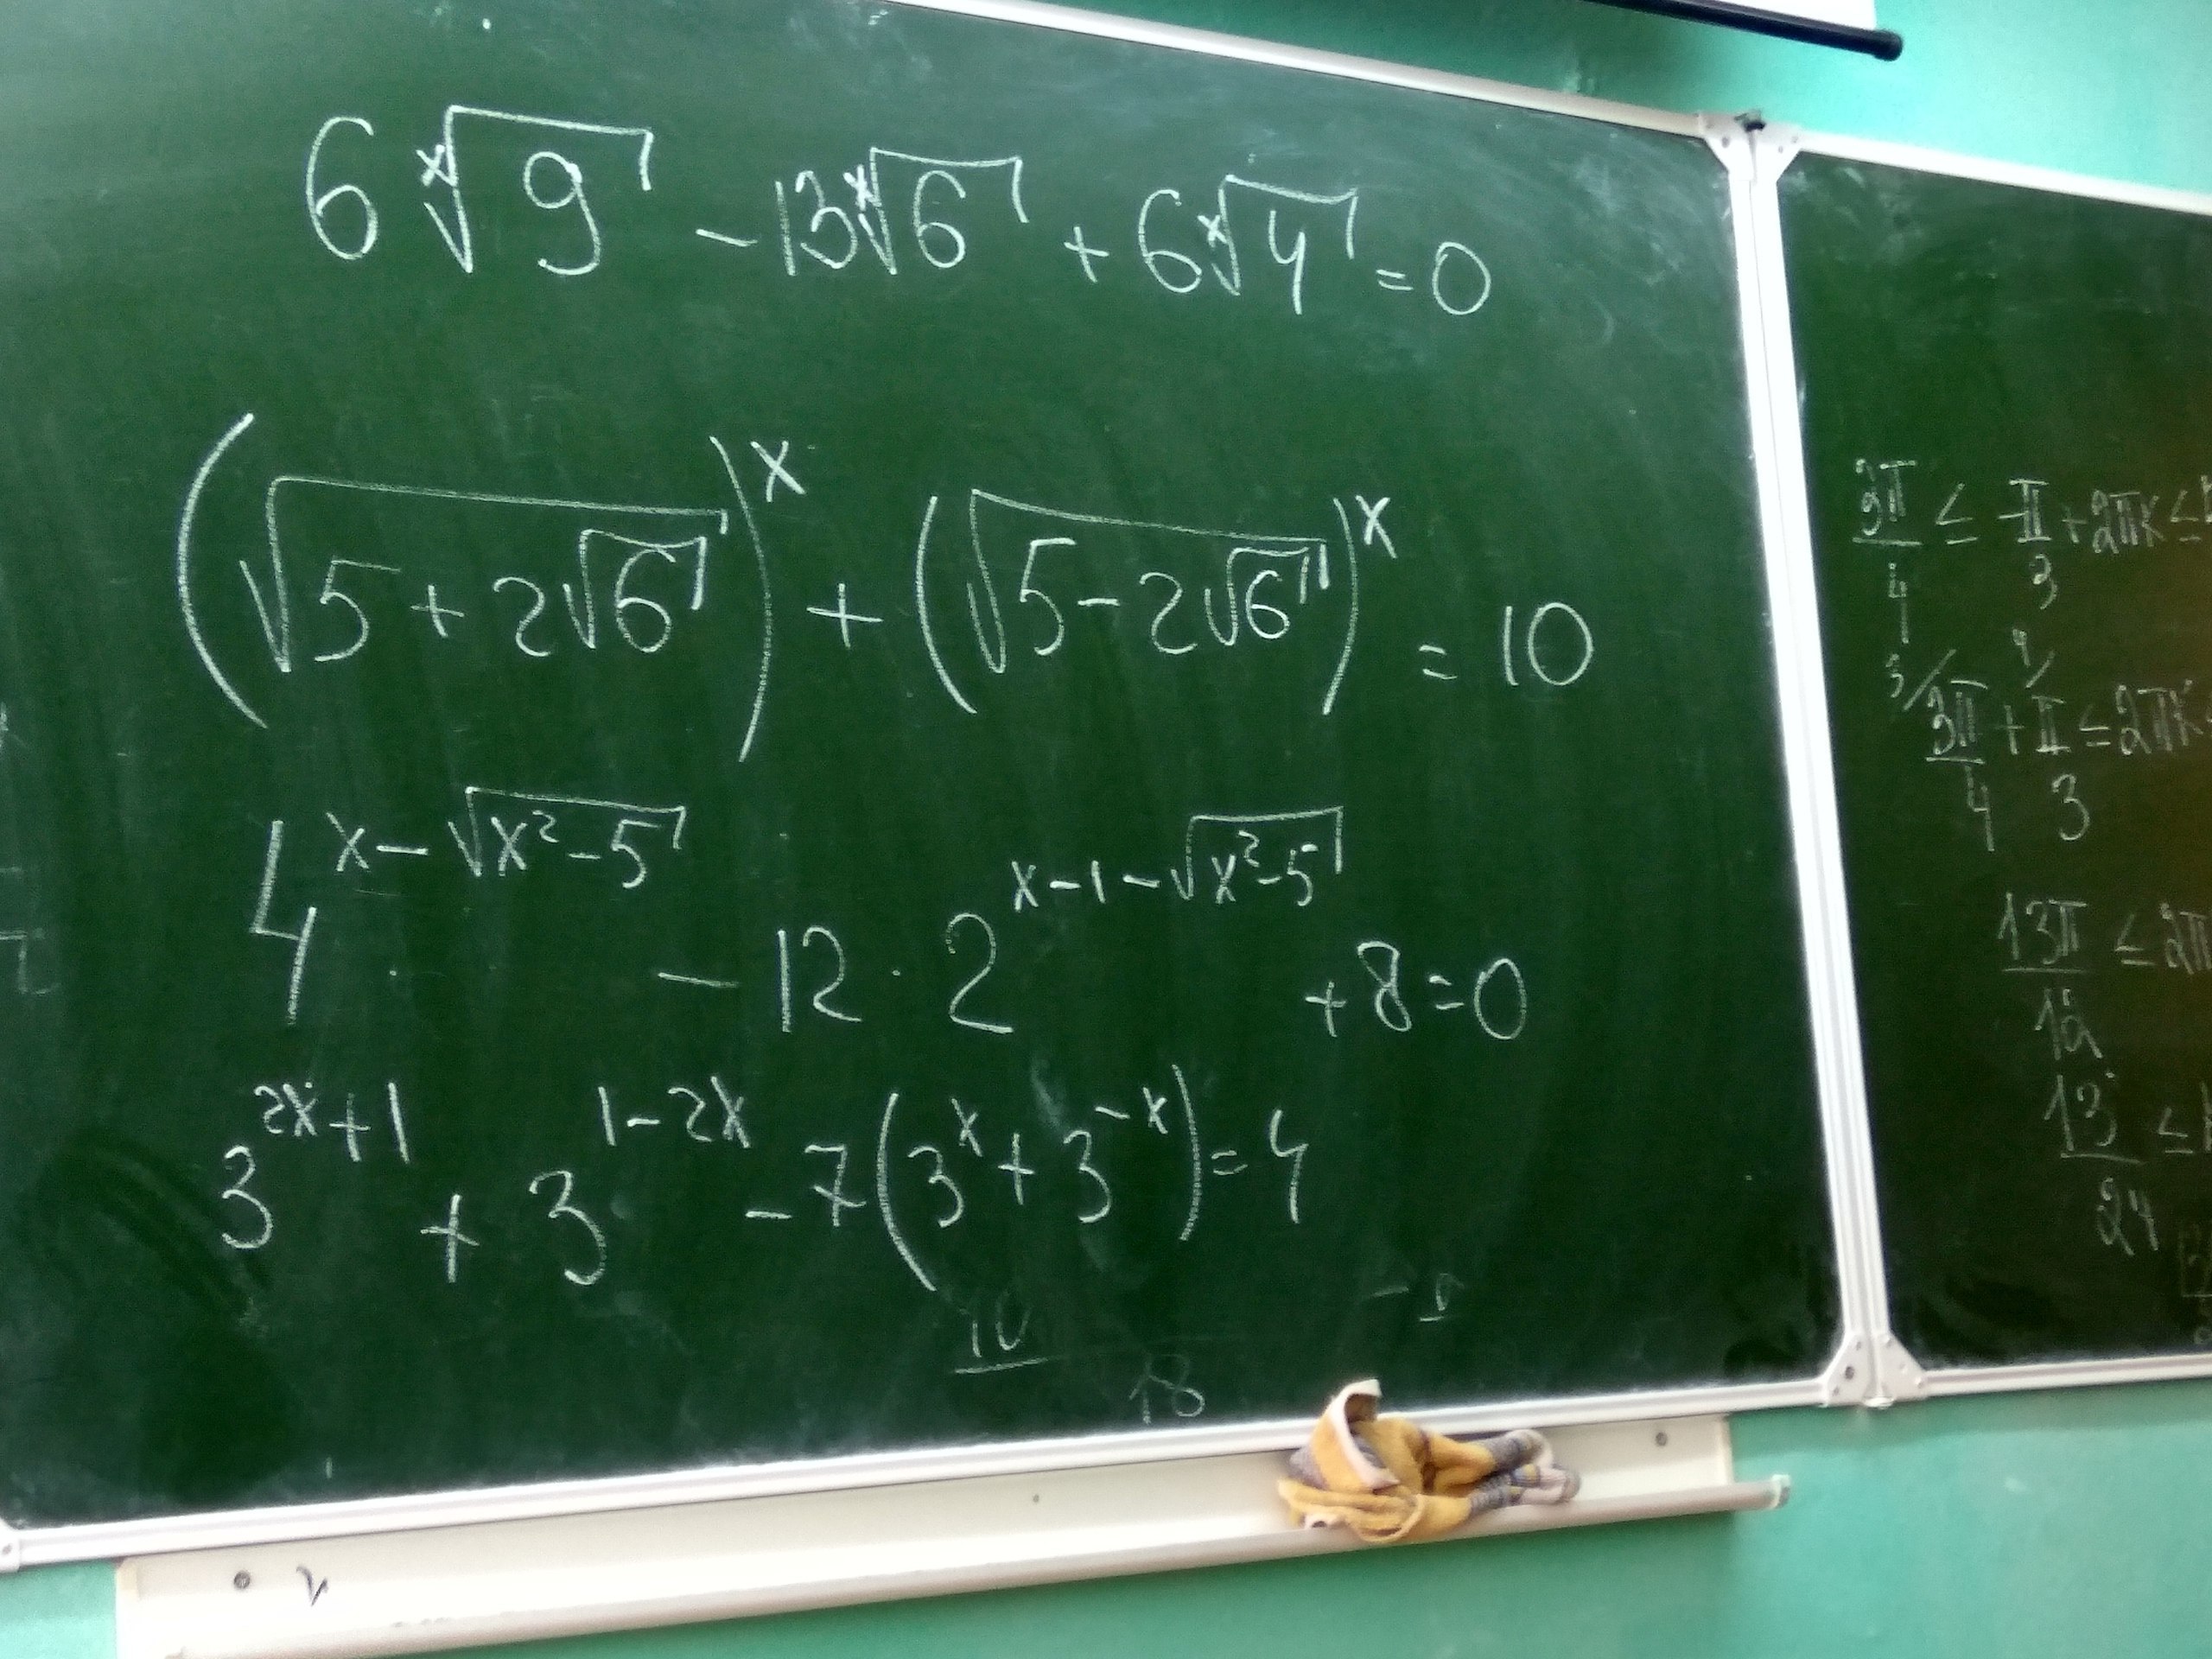 6 ˣ√9 - 13 ˣ√6 + 6 ˣ√4 = 0
(√(5 + 2√6))ˣ + (√(5 - 2√6))ˣ = 10
4^(x - √(x² - 5)) - 12 · 2^(x - 1 - √(x² - 5)) + 8 = 0
3^(2x + 1) + 3^(1 - 2x) - 7(3^x + 3^(-x)) = 4
10
18
3π/4 ≤ -π/3 + 2πk ≤
3/ 4/
3π/4 + π/3 ≤ 2πk
13π/12 ≤ 2π
13/24 ≤